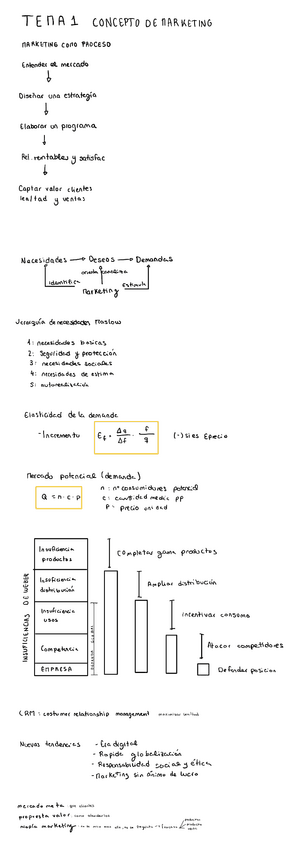 TEMA 1 CONCEPTO DE MARKETING
MARKETING COMO PROCESO
Entender el mercado
Diseñar una estrategia
Elaborar un programa
Rel. rentables y satisfac
Captar valor clientes
lealtad y ventas
Necesidades → Deseos → Demandas
identifica
orienta canaliza
estimula
Marketing
Jerarquía de necesidades Maslow
1: necesidades basicas
2: Seguridad y protección
3: necesidades sociales
4: necesidades de estima
5: autorrealización
Elasticidad de la demanda
- Incremento
Ef = Δq / Δf · f / q
(-) si es Eprecio
Mercado potencial (demanda)
Q = n · c · p
n: nº consumidores potencial
c: cantidad media pp
P: precio unidad
INSUFICIENCIAS DE WEBER
Insuficiencia
productos
Insuficiencia
distribución
Insuficiencia
usos
Competencia
EMPRESA
Completar gama productos
Ampliar distribución
Incentivar consumo
Atacar competidores
Defender posicion
CRM: costumer relationship management
Nuevas tendencias
- Era digital
- Rapida globalización
- Responsabilidad social y ética
- Marketing sin ánimo de lucro
mercado meta
propuesta valor
miopía marketing